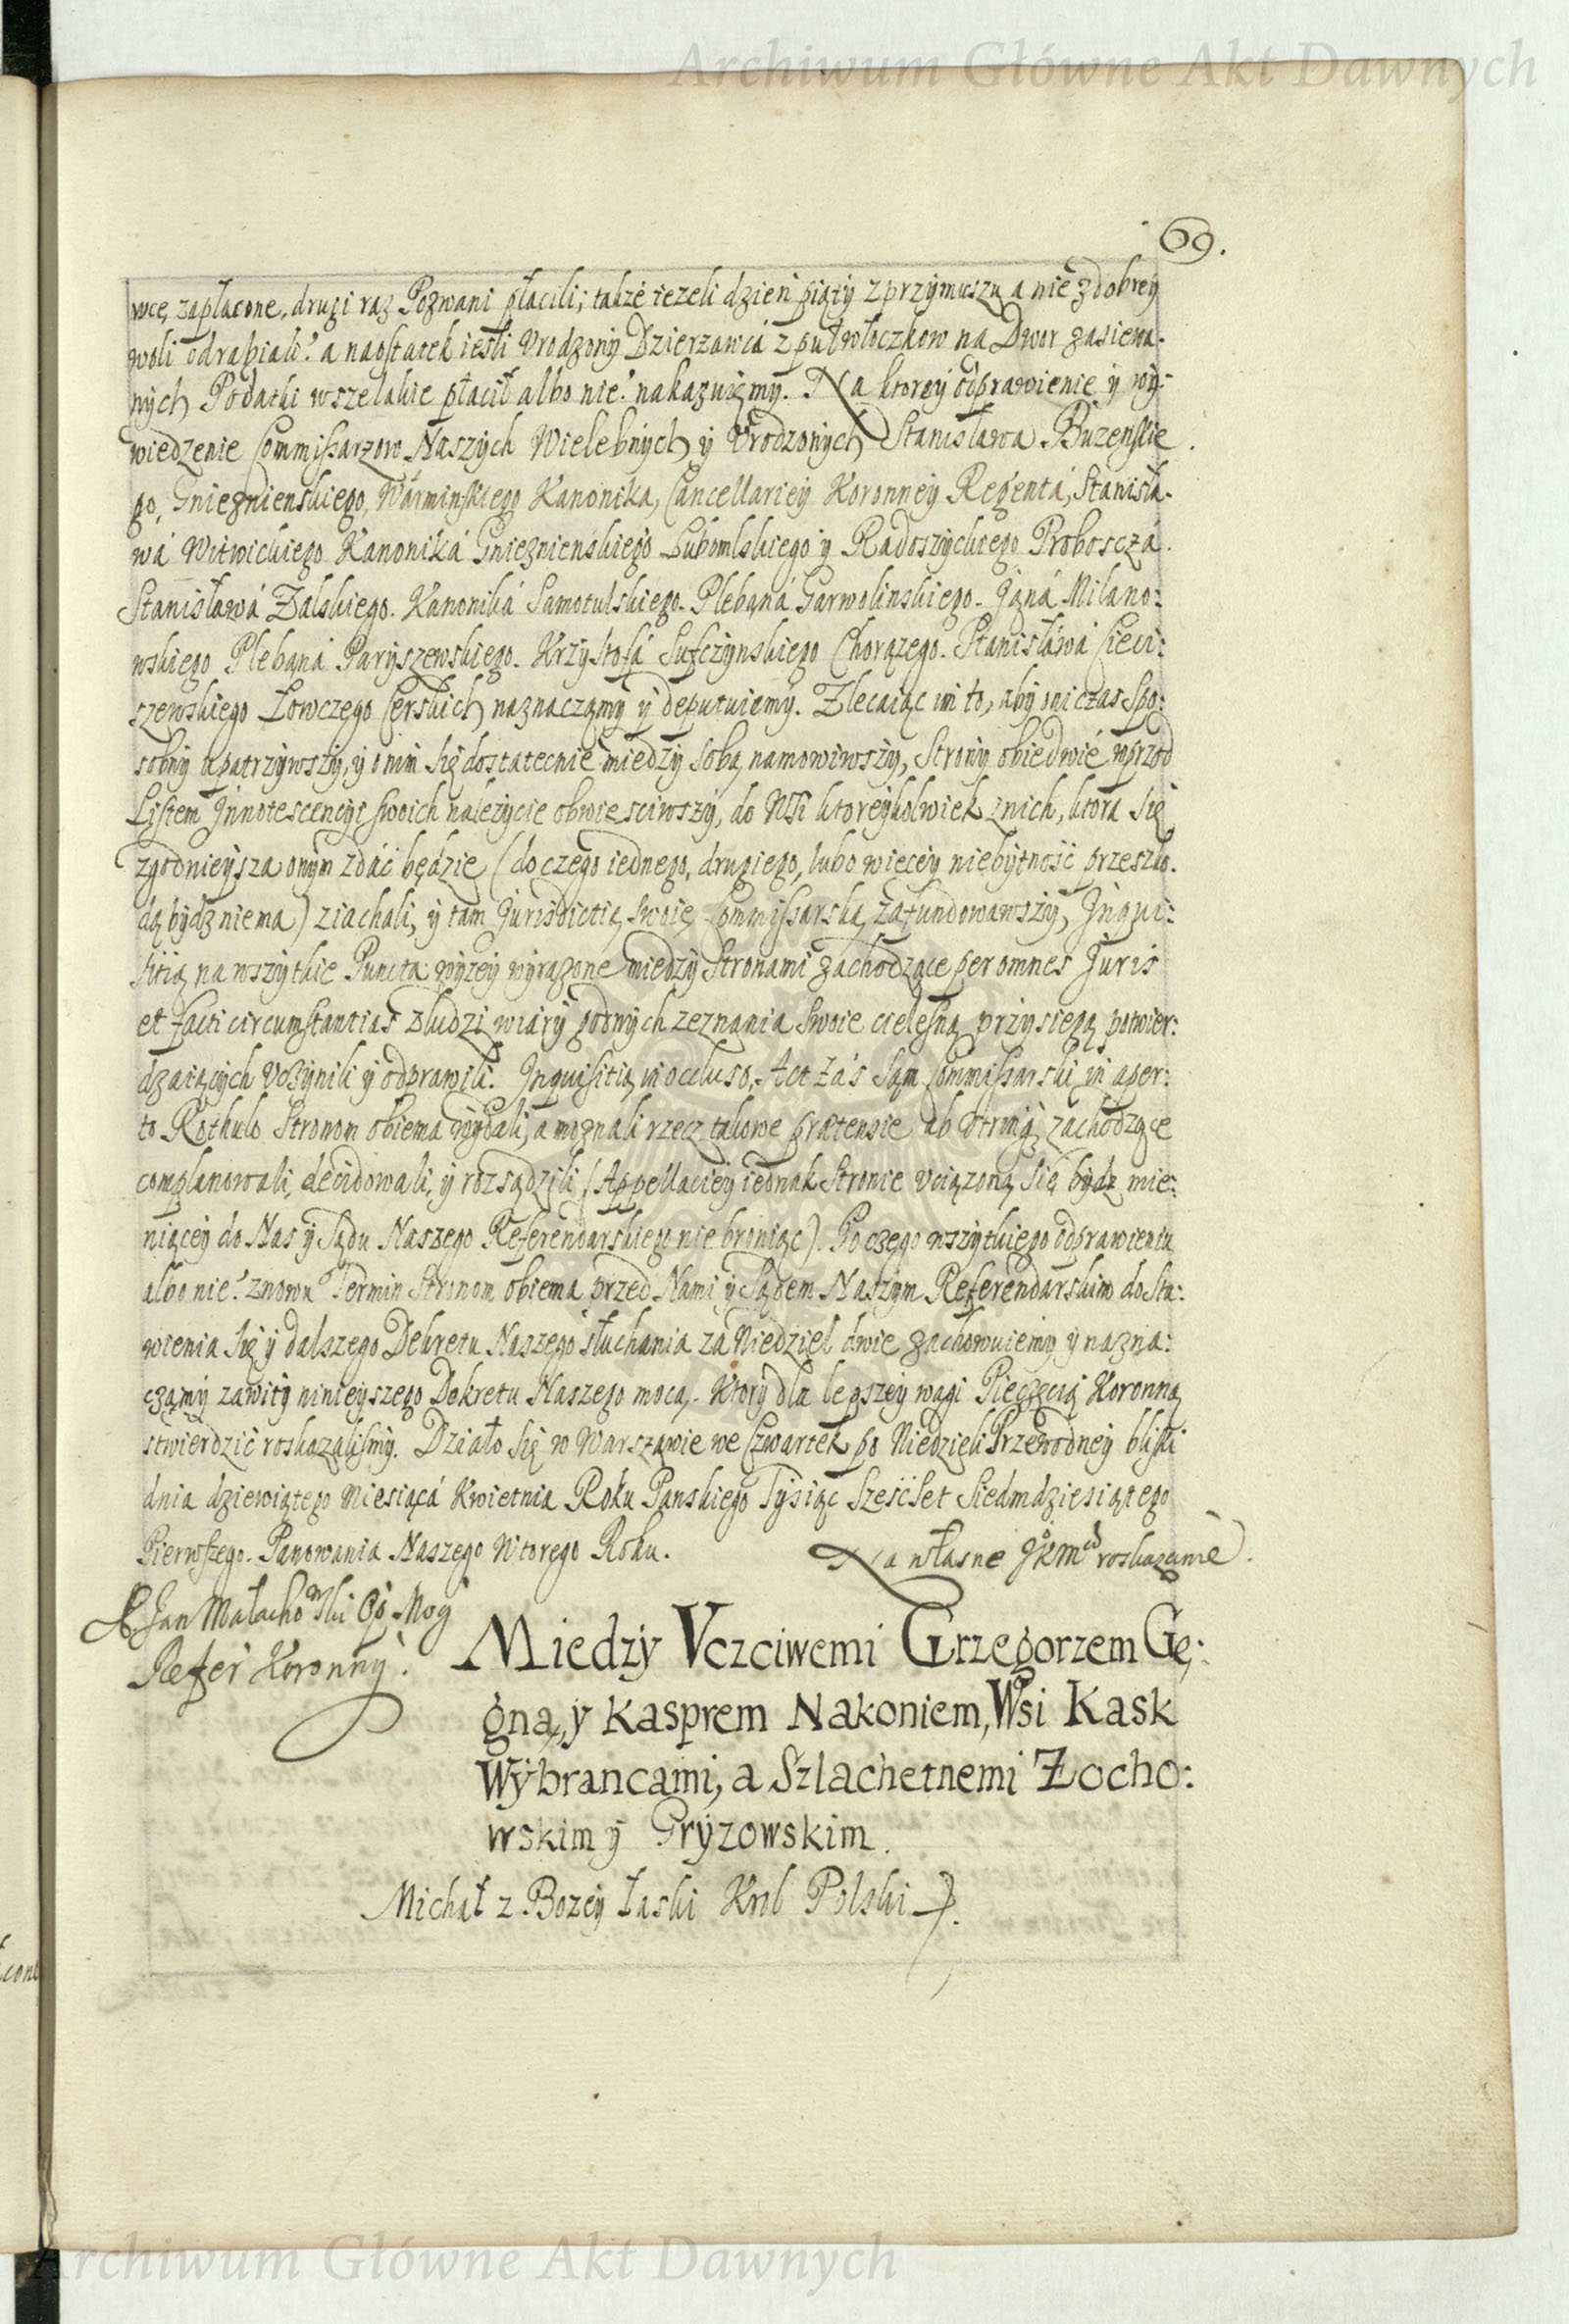 Archiwum Główne Akt Dawnych
69.
wce, zapłacone, drugi raz Pozwani płacili; także ieżeli dzień piąty z przymuszu a nie z dobrey
woli odrabiali? a naostatek iesli Vrodzony Dzierzawcá z pułwłoczkow na Dwor zasiewa-
nych Podatki wszelakie płacił albo nie? nakazuięmy. Na ktorey odprawienie y wy-
wiedzenie Commissarzow Naszych Wielebnych y Vrodzonych Stanisława Buzenskie
go, Gnieznienskiego, Wárminskiego Kanonika, Cancellariey Koronney Regentá, Stanisła-
wá Witwickiego Kanoniká Gnieznienskiego Lubomlskiego y Radoszyckiego Proboszczá.
Stanisławá Żalskiego. Kanoniká Samotulskiego. Plebaná Garwolinskiego. Janá Milano:
wskiego Plebaná Paryszewskiego. Krzysztofá Sufczynskiego Chorązego. Stanisławá Cieci:
szewskiego Łowczego Cerskich naznaczamy y deputuiemy. Zlecaiąc im to, aby oni czas Spo:
sobny upatrzywszy, y o nim się dostatecnie miedzy sobą namowiwszy, Strony obiedwie wprzod
Listem Jnnotescencyi swoich należycie obwiesciwszy, do Wsi ktoreykolwiek z nich, ktora się
zgodnieysza onym zdáć będzie (do czego iednego, drugiego, lubo więcey niebytność przeszko.
dą bydz niema) ziachali, y tam Jurisdictią swoię Commissarską zafundowawszy, Jnqui:
sitią na wszytkie Puncta wyzey wyrażone miedzy Stronami zachodzące per omnes Juris
et facti circumstantias z ludzi wiáry godnych zeznania swoie cielesną przysięgą potwier:
dzaiących vczynili y odprawili. Jnquisitią in ocluso, Act záś Sąm Commissarski in aper:
to Rothulo Stronom obiema wydali, a moznali rzecz takowe prætensie ab utrinq zachodzące
complanowali, decidowali, y rozsądzili (Appellaciey iednak Stronie vciązoną się bydz mie:
niącey do Nas y Sądu Naszego Referendarskiego nie broniąc). Po czego wszytkiego odprawieniu
albo nie? znowu Termin Stronom obiema przed Nami y Sądem Naszym Referendarskim do Sta:
wienia się y dalszego Dekretu Naszego słuchania za Niedziel dwie zachowuiemy y nazna:
czamy zawity ninieyszego Dekretu Naszego mocą. Ktory dla lepszey wagi Pieczęcią Koronną
stwierdzić roskazalismy. Działo się w Warszawie we Czwartek po Niedzieli Przewodney bliski
dnia dziewiątego Miesiącá Kwietnia Roku Panskiego Tysiąc Sześćset Siedmdziesiątego
Pierwszego. Panowania Naszego Wtorego Roku.
Na własne JKMci roskazanie.
X. Jan Małachowski Op. Mog
Refer Koronny.
Miedzy Vczciwemi Grzegorzem Gę:
gną, y Kasprem Nakoniem, Wsi Kask
Wybrancami, a Szlachetnemi Żocho:
wskim y Gryzowskim.
Michał z Bozey Łaski Krol Polski
Archiwum Główne Akt Dawnych